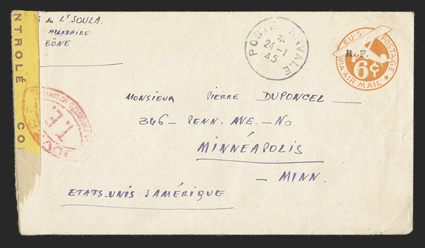 de Lt SOULA.
MILITAIRE
BÔNE
CONTROLÉ
POSTE NAVALE
24-1
45
U.S. POSTAGE
R.F.
6¢
VIA AIR MAIL
MONSIEUR PIERRE DUPONCEL
346 - PENN. AVE - NO
MINNÉAPOLIS
- MINN.
ETATS-UNIS D'AMÉRIQUE